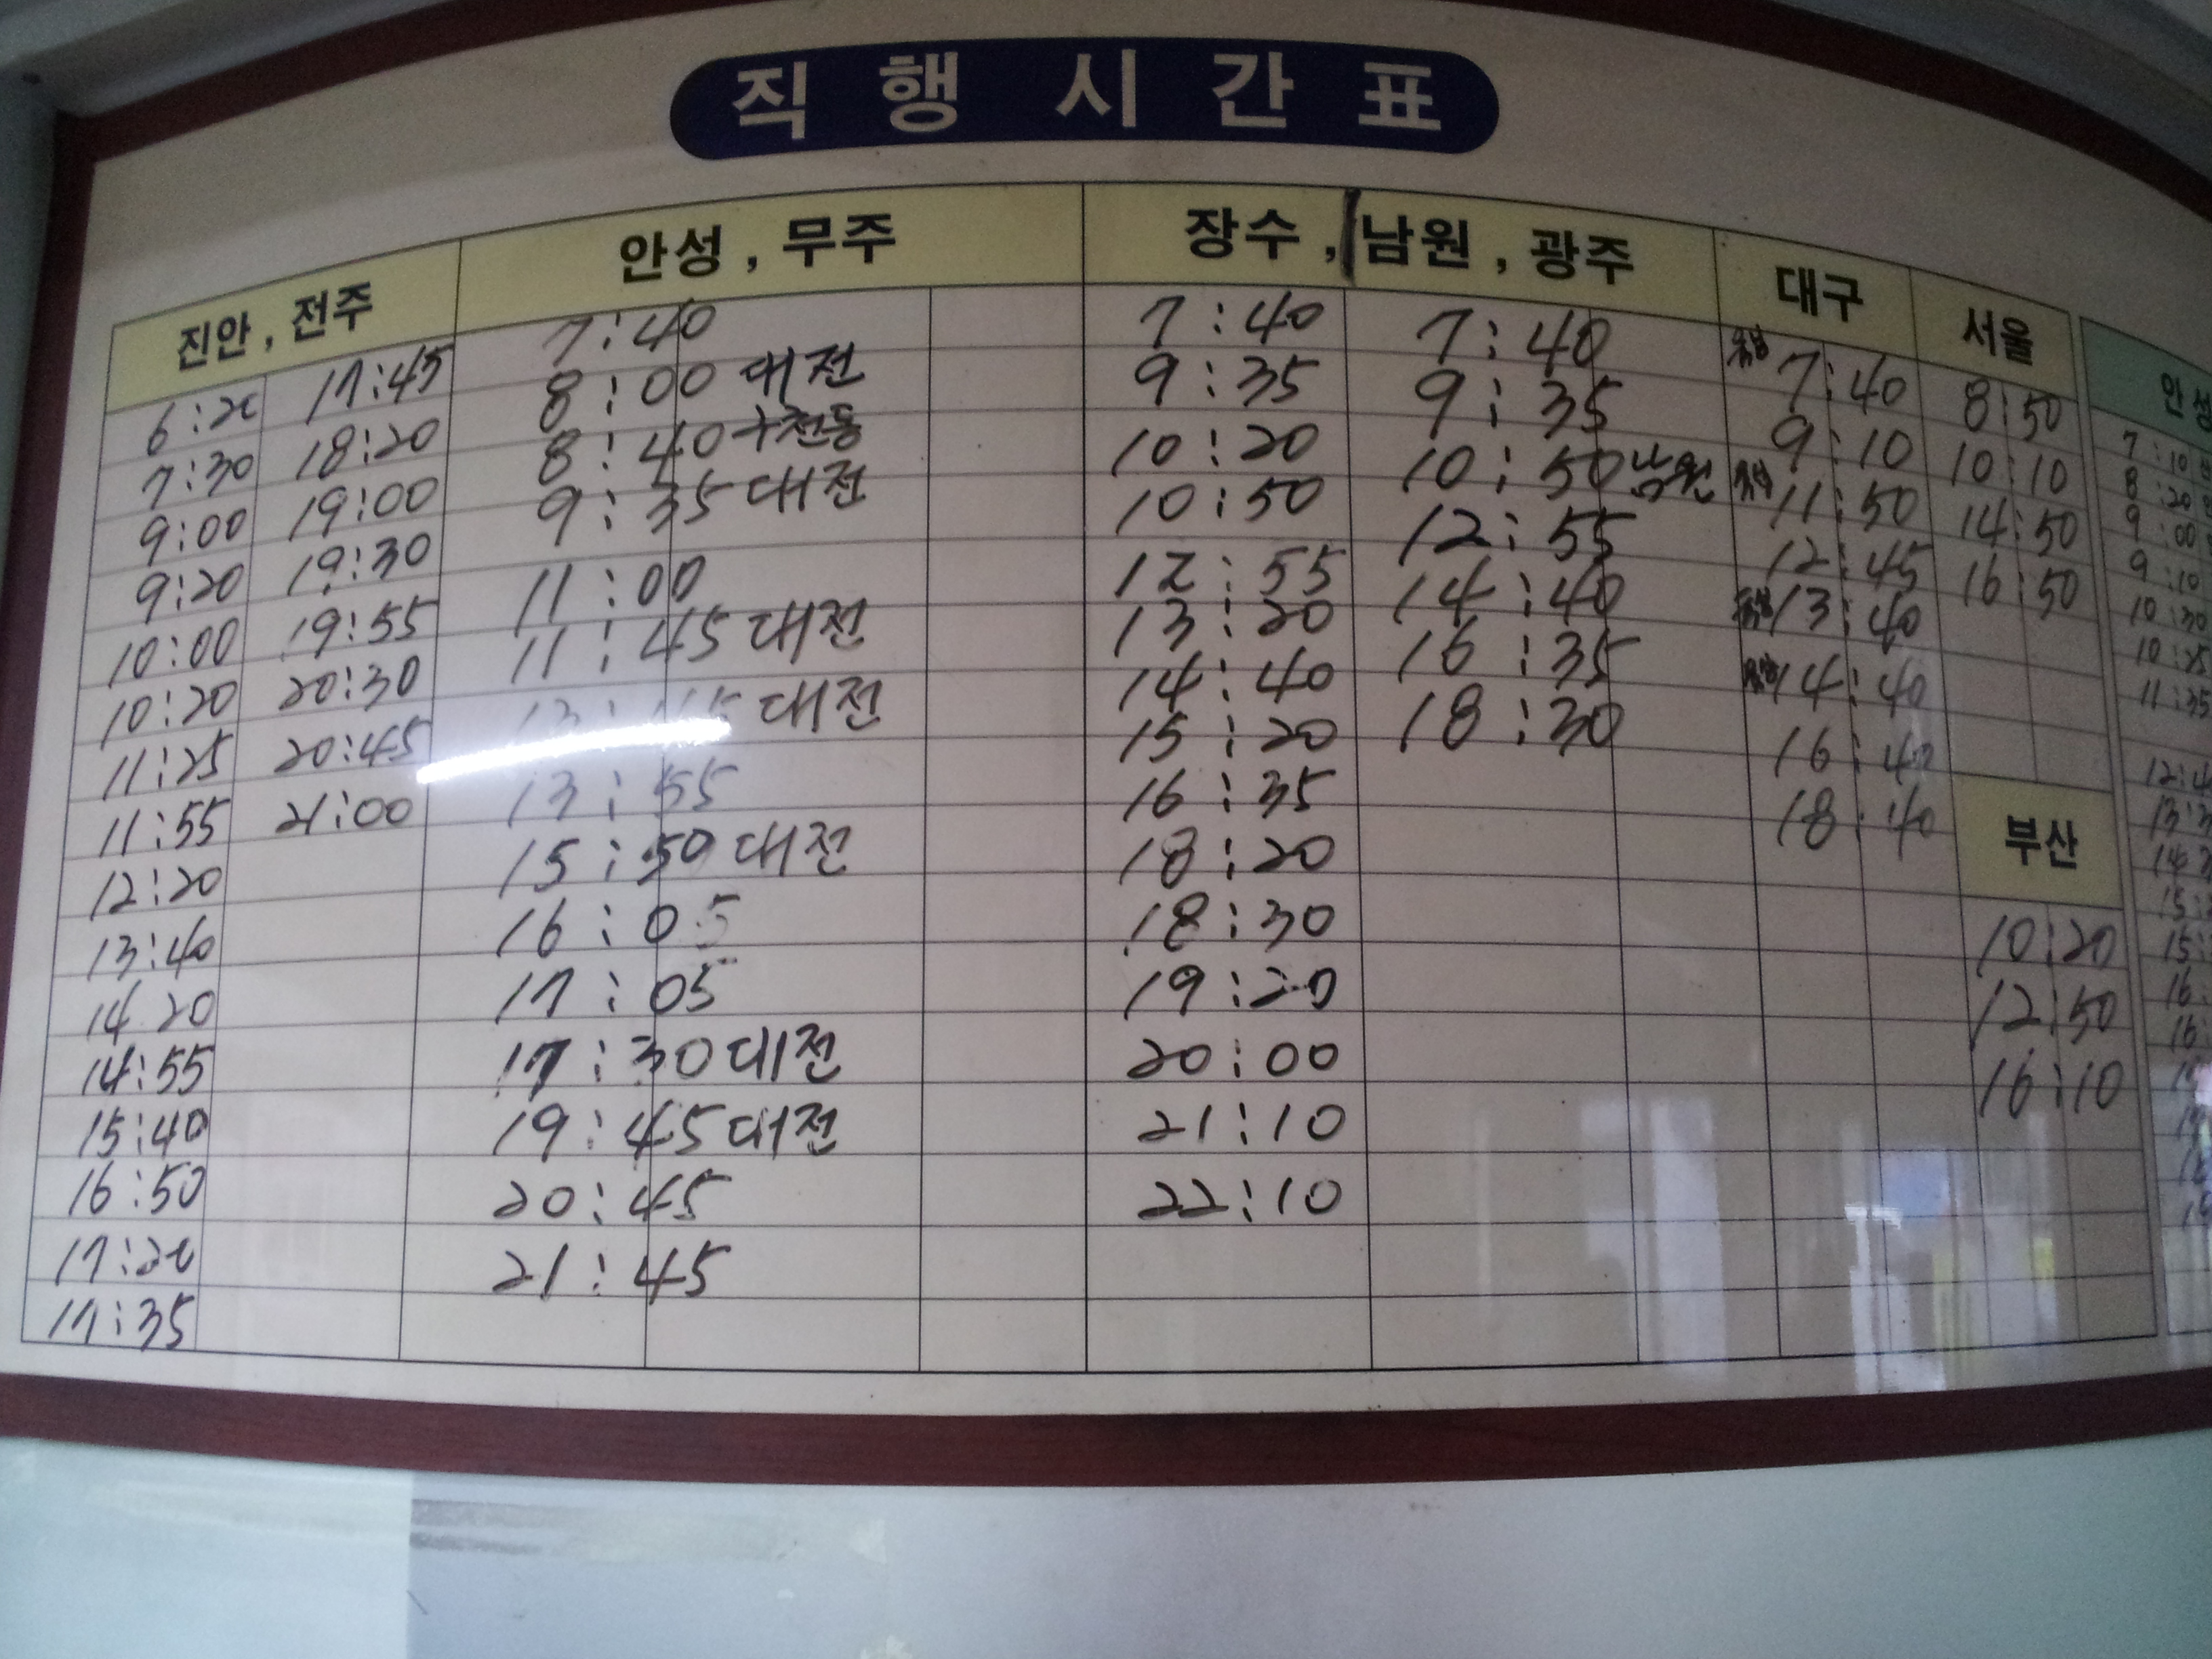 직행시간표
진안, 전주
6:20 17:45
7:30 18:20
9:00 19:00
9:20 19:30
10:00 19:55
10:20 20:30
11:25 20:45
11:55 21:00
12:20
13:40
14 20
14:55
15:40
16:50
17:20
17:35
안성, 무주
7:40
8:00 대전
8:40 구천동
9:35 대전
11:00
11:45 대전
대전
13:55
15:50 대전
16:05
17:05
17:30 대전
19:45 대전
20:45
21:45
장수, 남원, 광주
7:40 7:40
9:35 9:35
10:20 10:50 남원
10:50 12:55
12:55 14:40
13:20 16:35
14:40 18:30
15:20
16:35
18:20
18:30
19:20
20:00
21:10
22:10
대구
7:40
9:10
11:50
12:45
13:40
14:40
16:40
18:40
서울
8:50
10:10
14:50
16:50
부산
10:20
12:50
16:10
안성
7:10
8:20
9:00
9:10
10:30
10:25
11:35